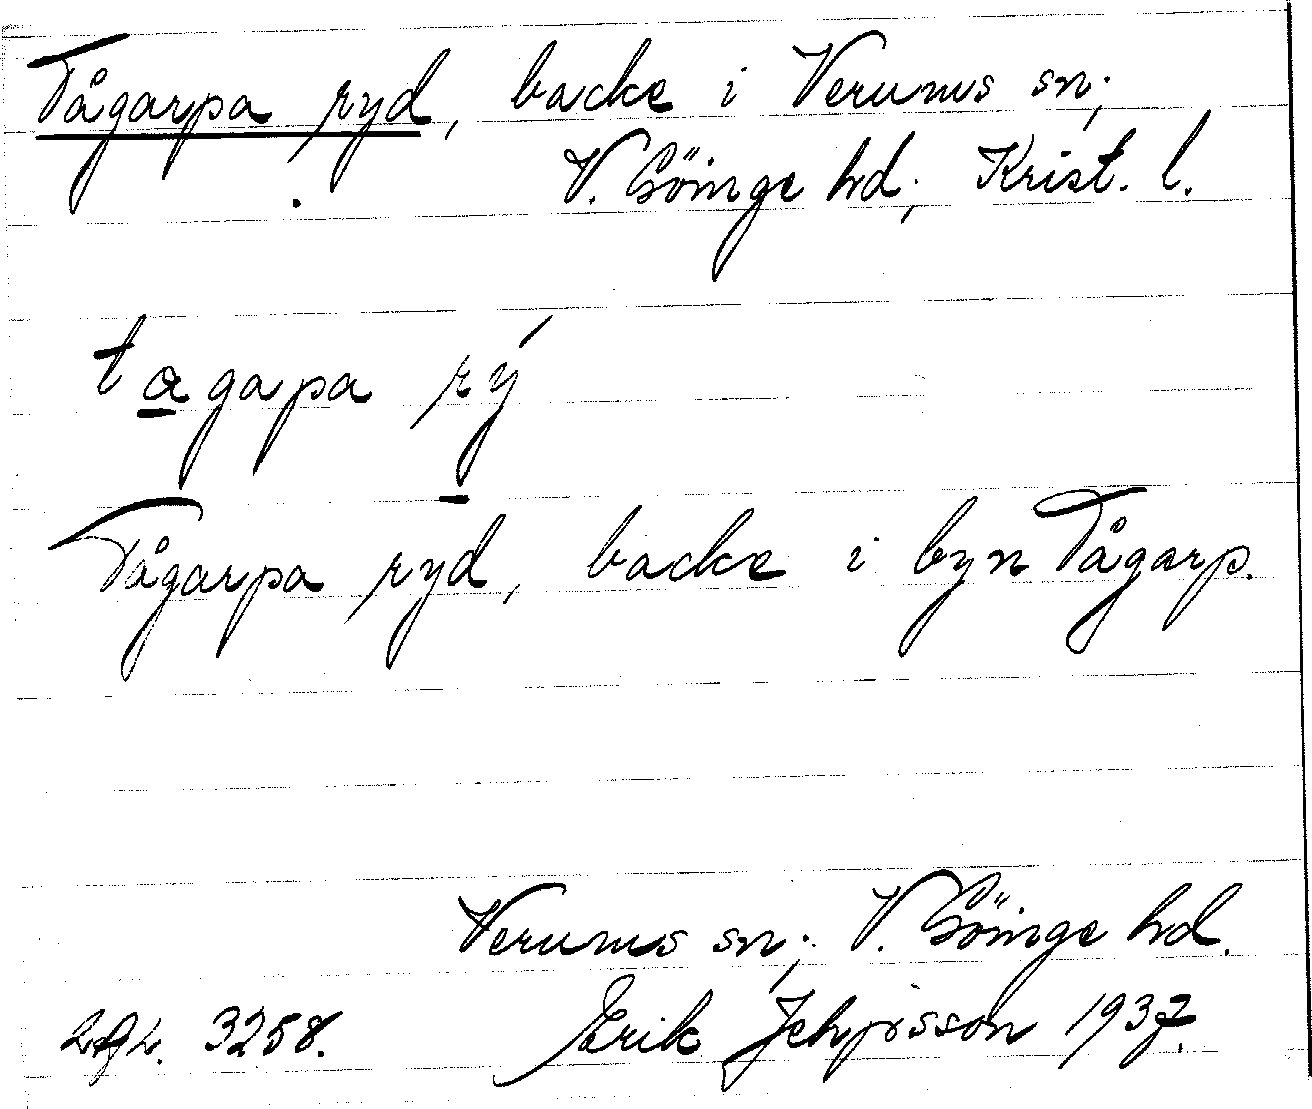 Tågarpa ryd, backe i Verums sn;
V. Göinge hd; Krist. l.
tagapa rý
Tågarpa ryd, backe i byn Tågarp.
Verums sn; V. Göinge hd.
3258. Erik 1937.